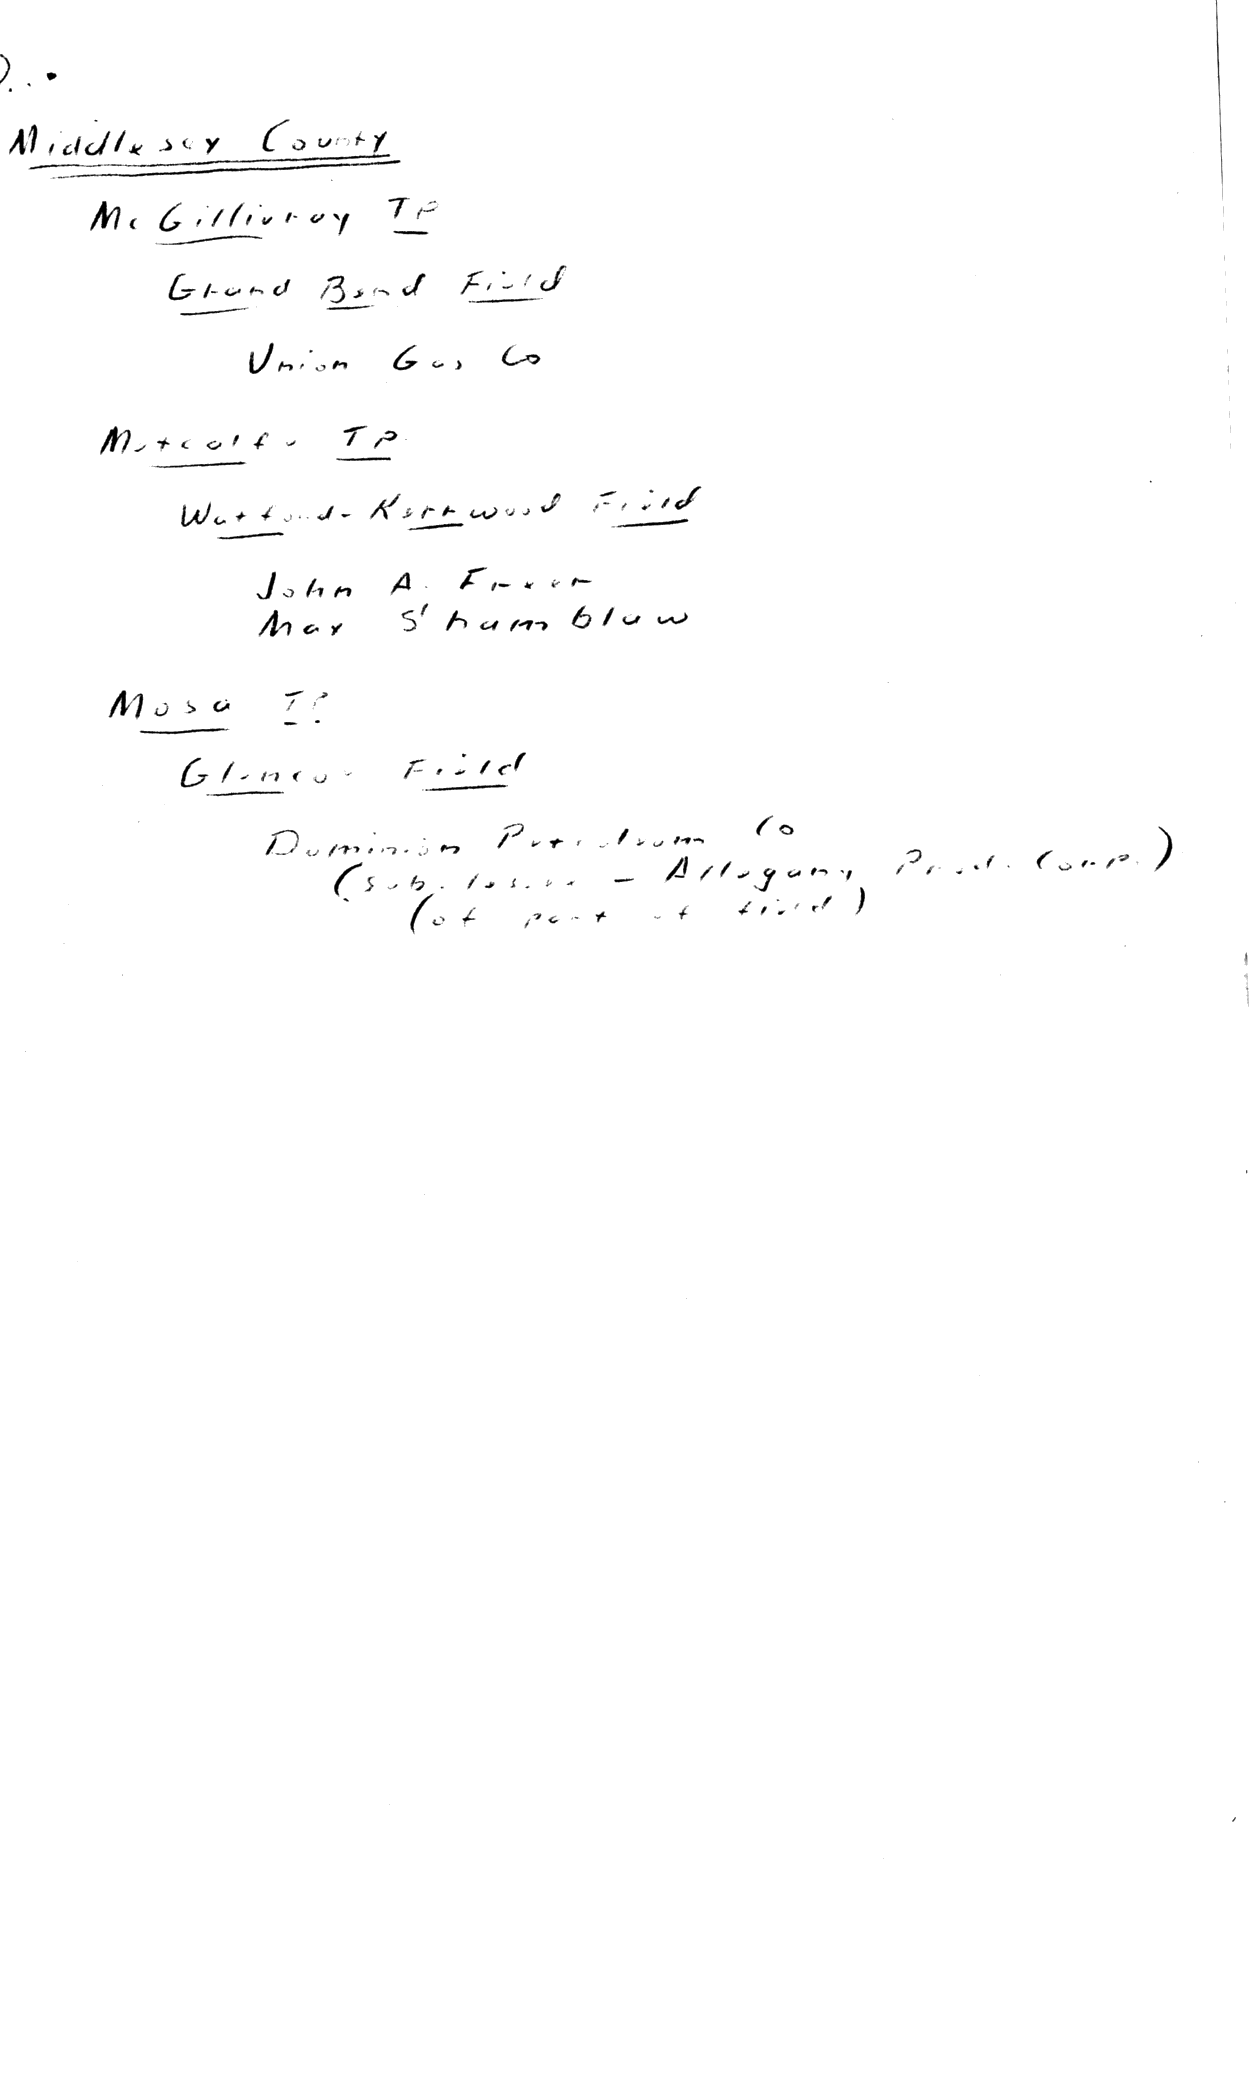 Middlesex County
McGillivray TP
Grand Bend Field
Union Gas Co
Metcalfe TP
Watford-Kerrwood Field
John A.
Max Shamblaw
Mosa TP
Glencoe Field
Dominion Petroleum Co
(sub. lessee - Allegany Prod. Corp.)
(of part of field)